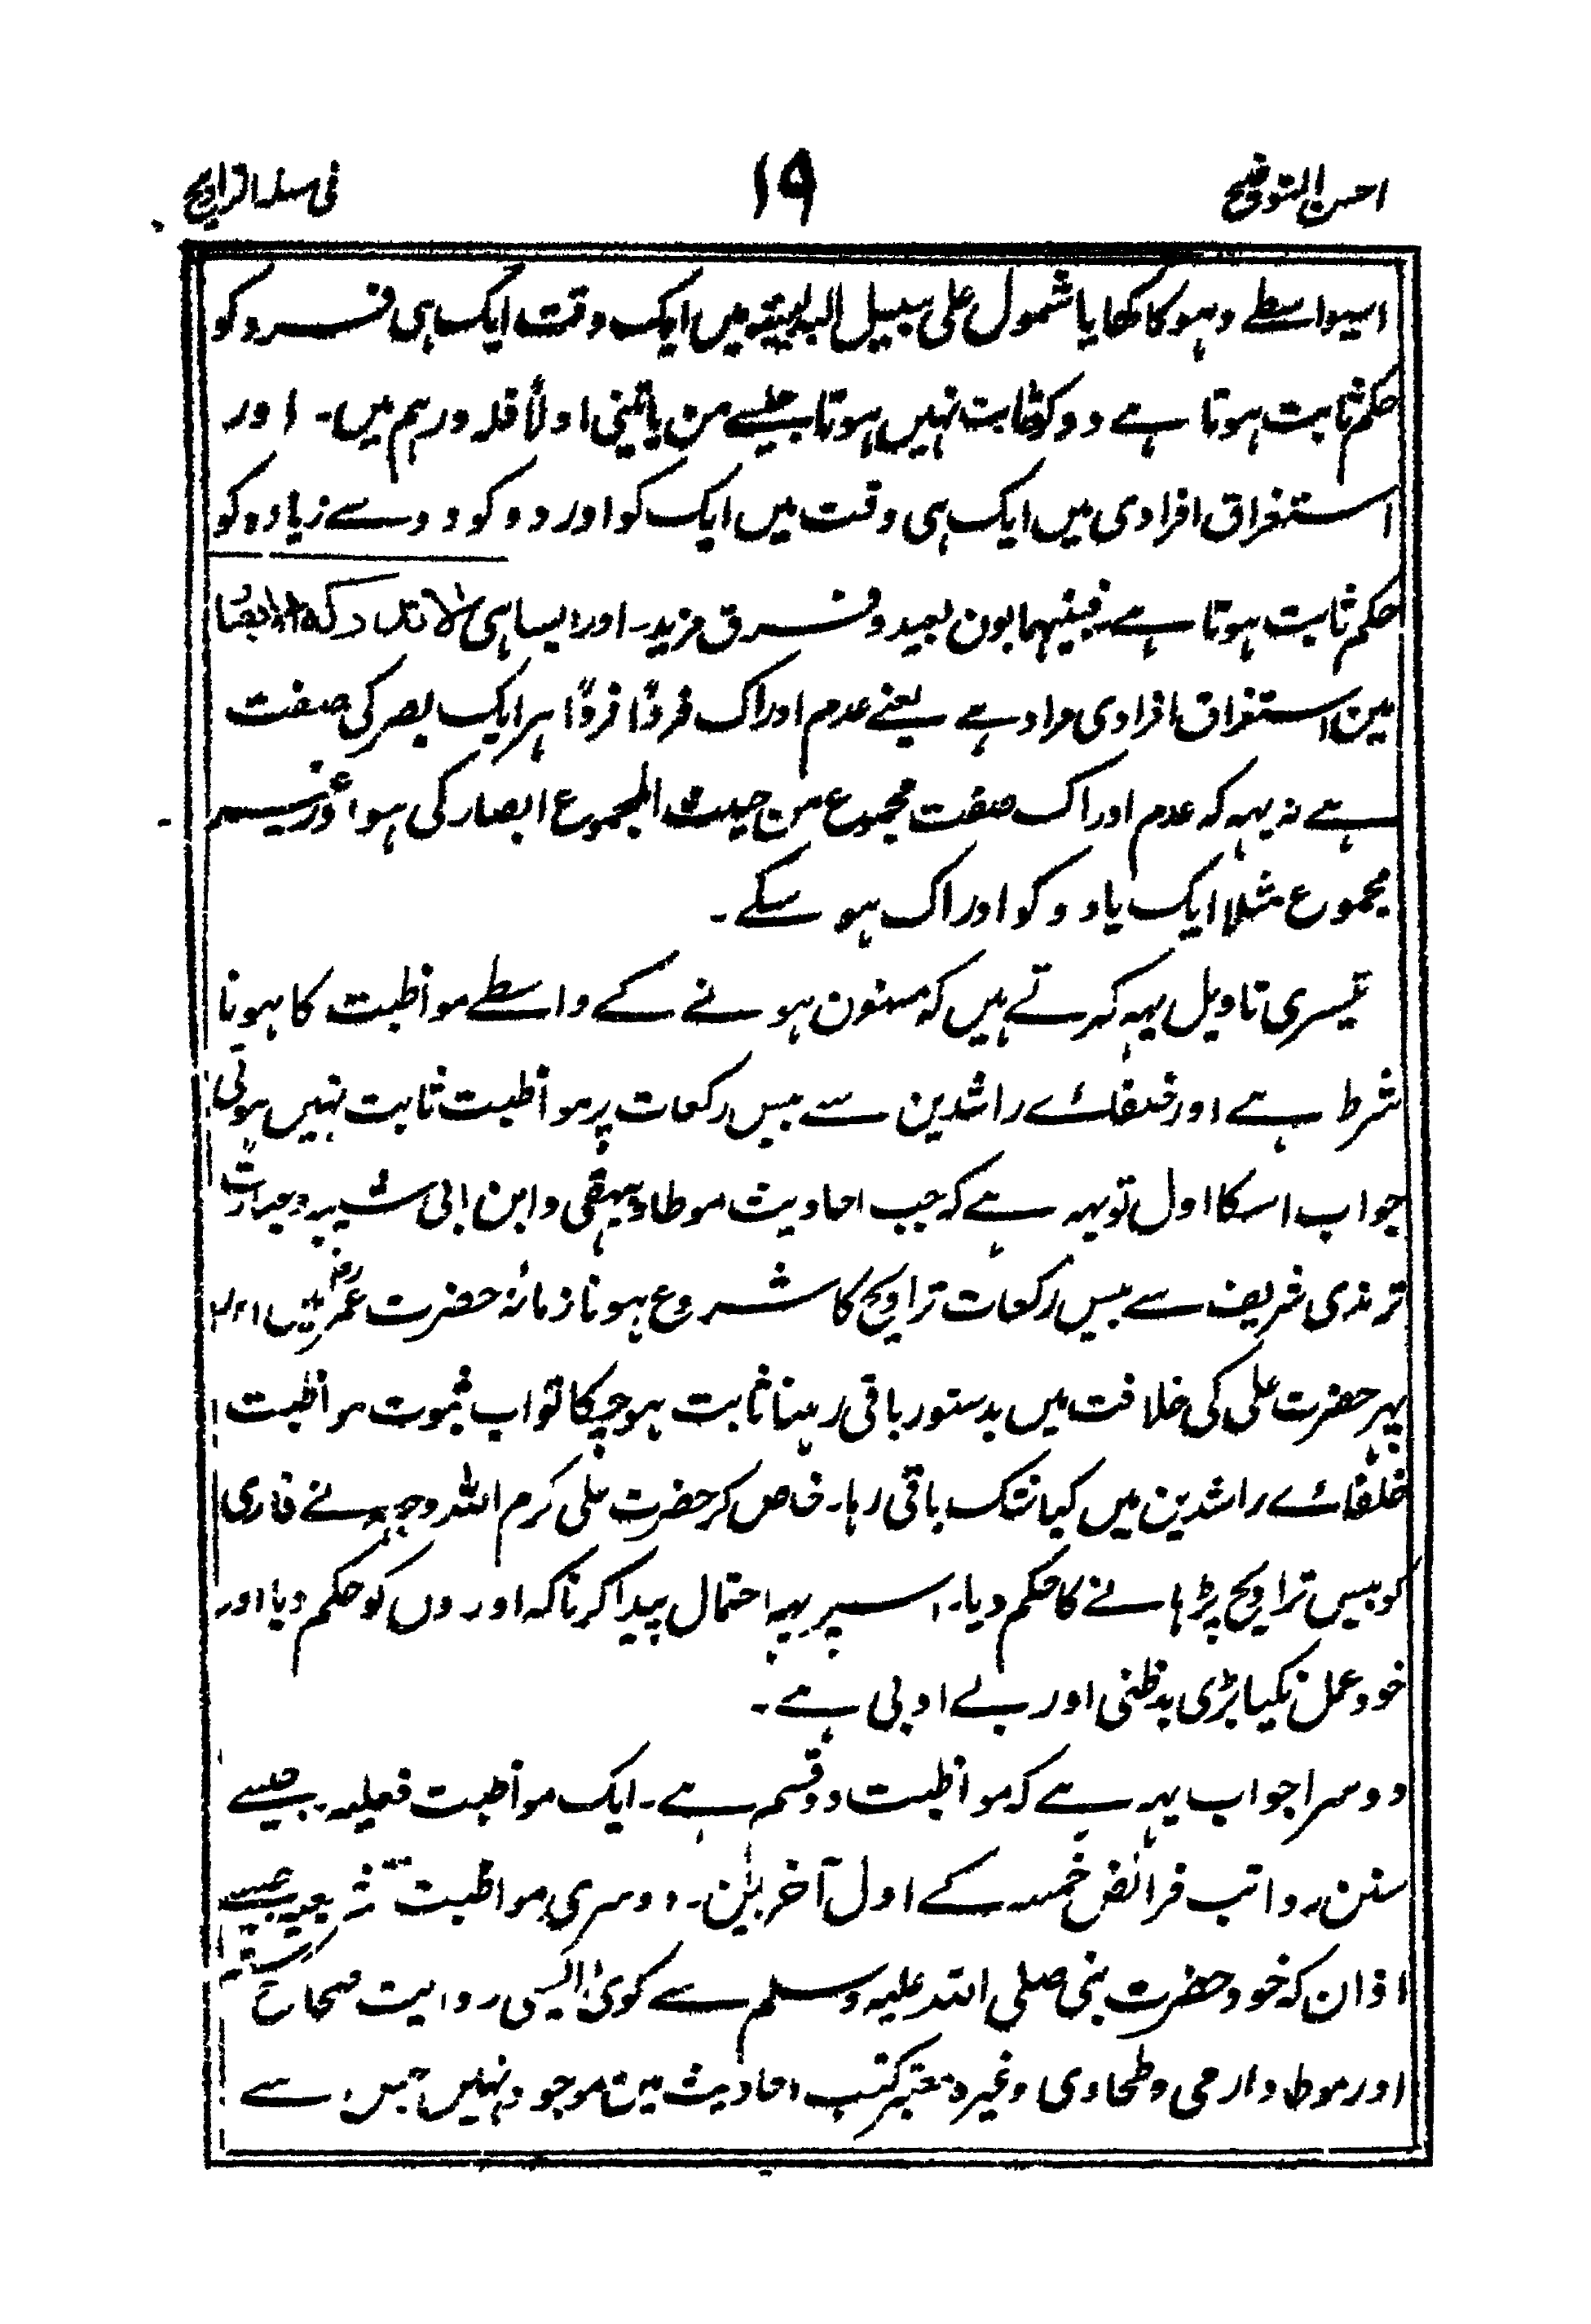 احسن التوضیح
۱۹
فی مسئلۃ التراویح
اسیواسطے دہوکا کھایا شمول علی سبیل البدلیۃ میں ایک وقت ایک ہی فرد کو
حکم ثابت ہوتا ہے دو کو ثابت نہیں ہوتا جیسے من یاتینی اولاً فلہ درہم میں۔ اور
استغراق افرادی میں ایک ہی وقت میں ایک کو اور دو کو دو سے زیادہ کو
حکم ثابت ہوتا ہے۔ فبینہما بون بعید و فرق مزید۔ اور ایسا ہی لا تدرکہ الابصار
میں استغراق افرادی مراد ہے یعنے عدم ادراک فرداً فرداً ہر ایک بصر کی صفت
ہے نہ یہہ کہ عدم ادراک صفت مجموع من حیث المجموع ابصار کی ہو اور غیر
مجموع مثلا ایک یا دو کو ادراک ہو سکے۔
تیسری تاویل یہہ کرتے ہیں کہ مسنون ہونے کے واسطے مواظبت کا ہونا
شرط ہے اور خلفائے راشدین سے بیس رکعات پر مواظبت ثابت نہیں ہوئی
جواب اسکا اول تو یہہ ہے کہ جب احادیث موطا و بیہقی و ابن ابی شیبہ و عبارت
ترمذی شریف سے بیس رکعات تراویح کا شروع ہونا زمانہ حضرت عمرؓ میں اور
پہر حضرت علی کی خلافت میں بدستور باقی رہنا ثابت ہو چکا تو اب ثبوت مواظبت
خلفائے راشدین میں کیا شک باقی رہا۔ خاص کر حضرت علی کرم اللہ وجہہ نے قاری
کو بیس تراویح پڑہانے کا حکم دیا۔ اسپر یہہ احتمال پیدا کرنا کہ اوروں کو حکم دیا اور
خود عمل نکیا بڑی بدظنی اور بے ادبی ہے۔
دوسرا جواب یہہ ہے کہ مواظبت دو قسم ہے۔ ایک مواظبت فعلیہ۔ جیسے
سنن رواتب فرائض خمسہ کے اول آخر میں۔ دوسری مواظبت تشریعیہ جیسے
اذان کہ خود حضرت نبی صلی اللہ علیہ وسلم سے کوئی ایسی روایت صحاح ستہ
اور موطا دارمی و طحاوی وغیرہ معتبر کتب احادیث میں موجود نہیں جس سے